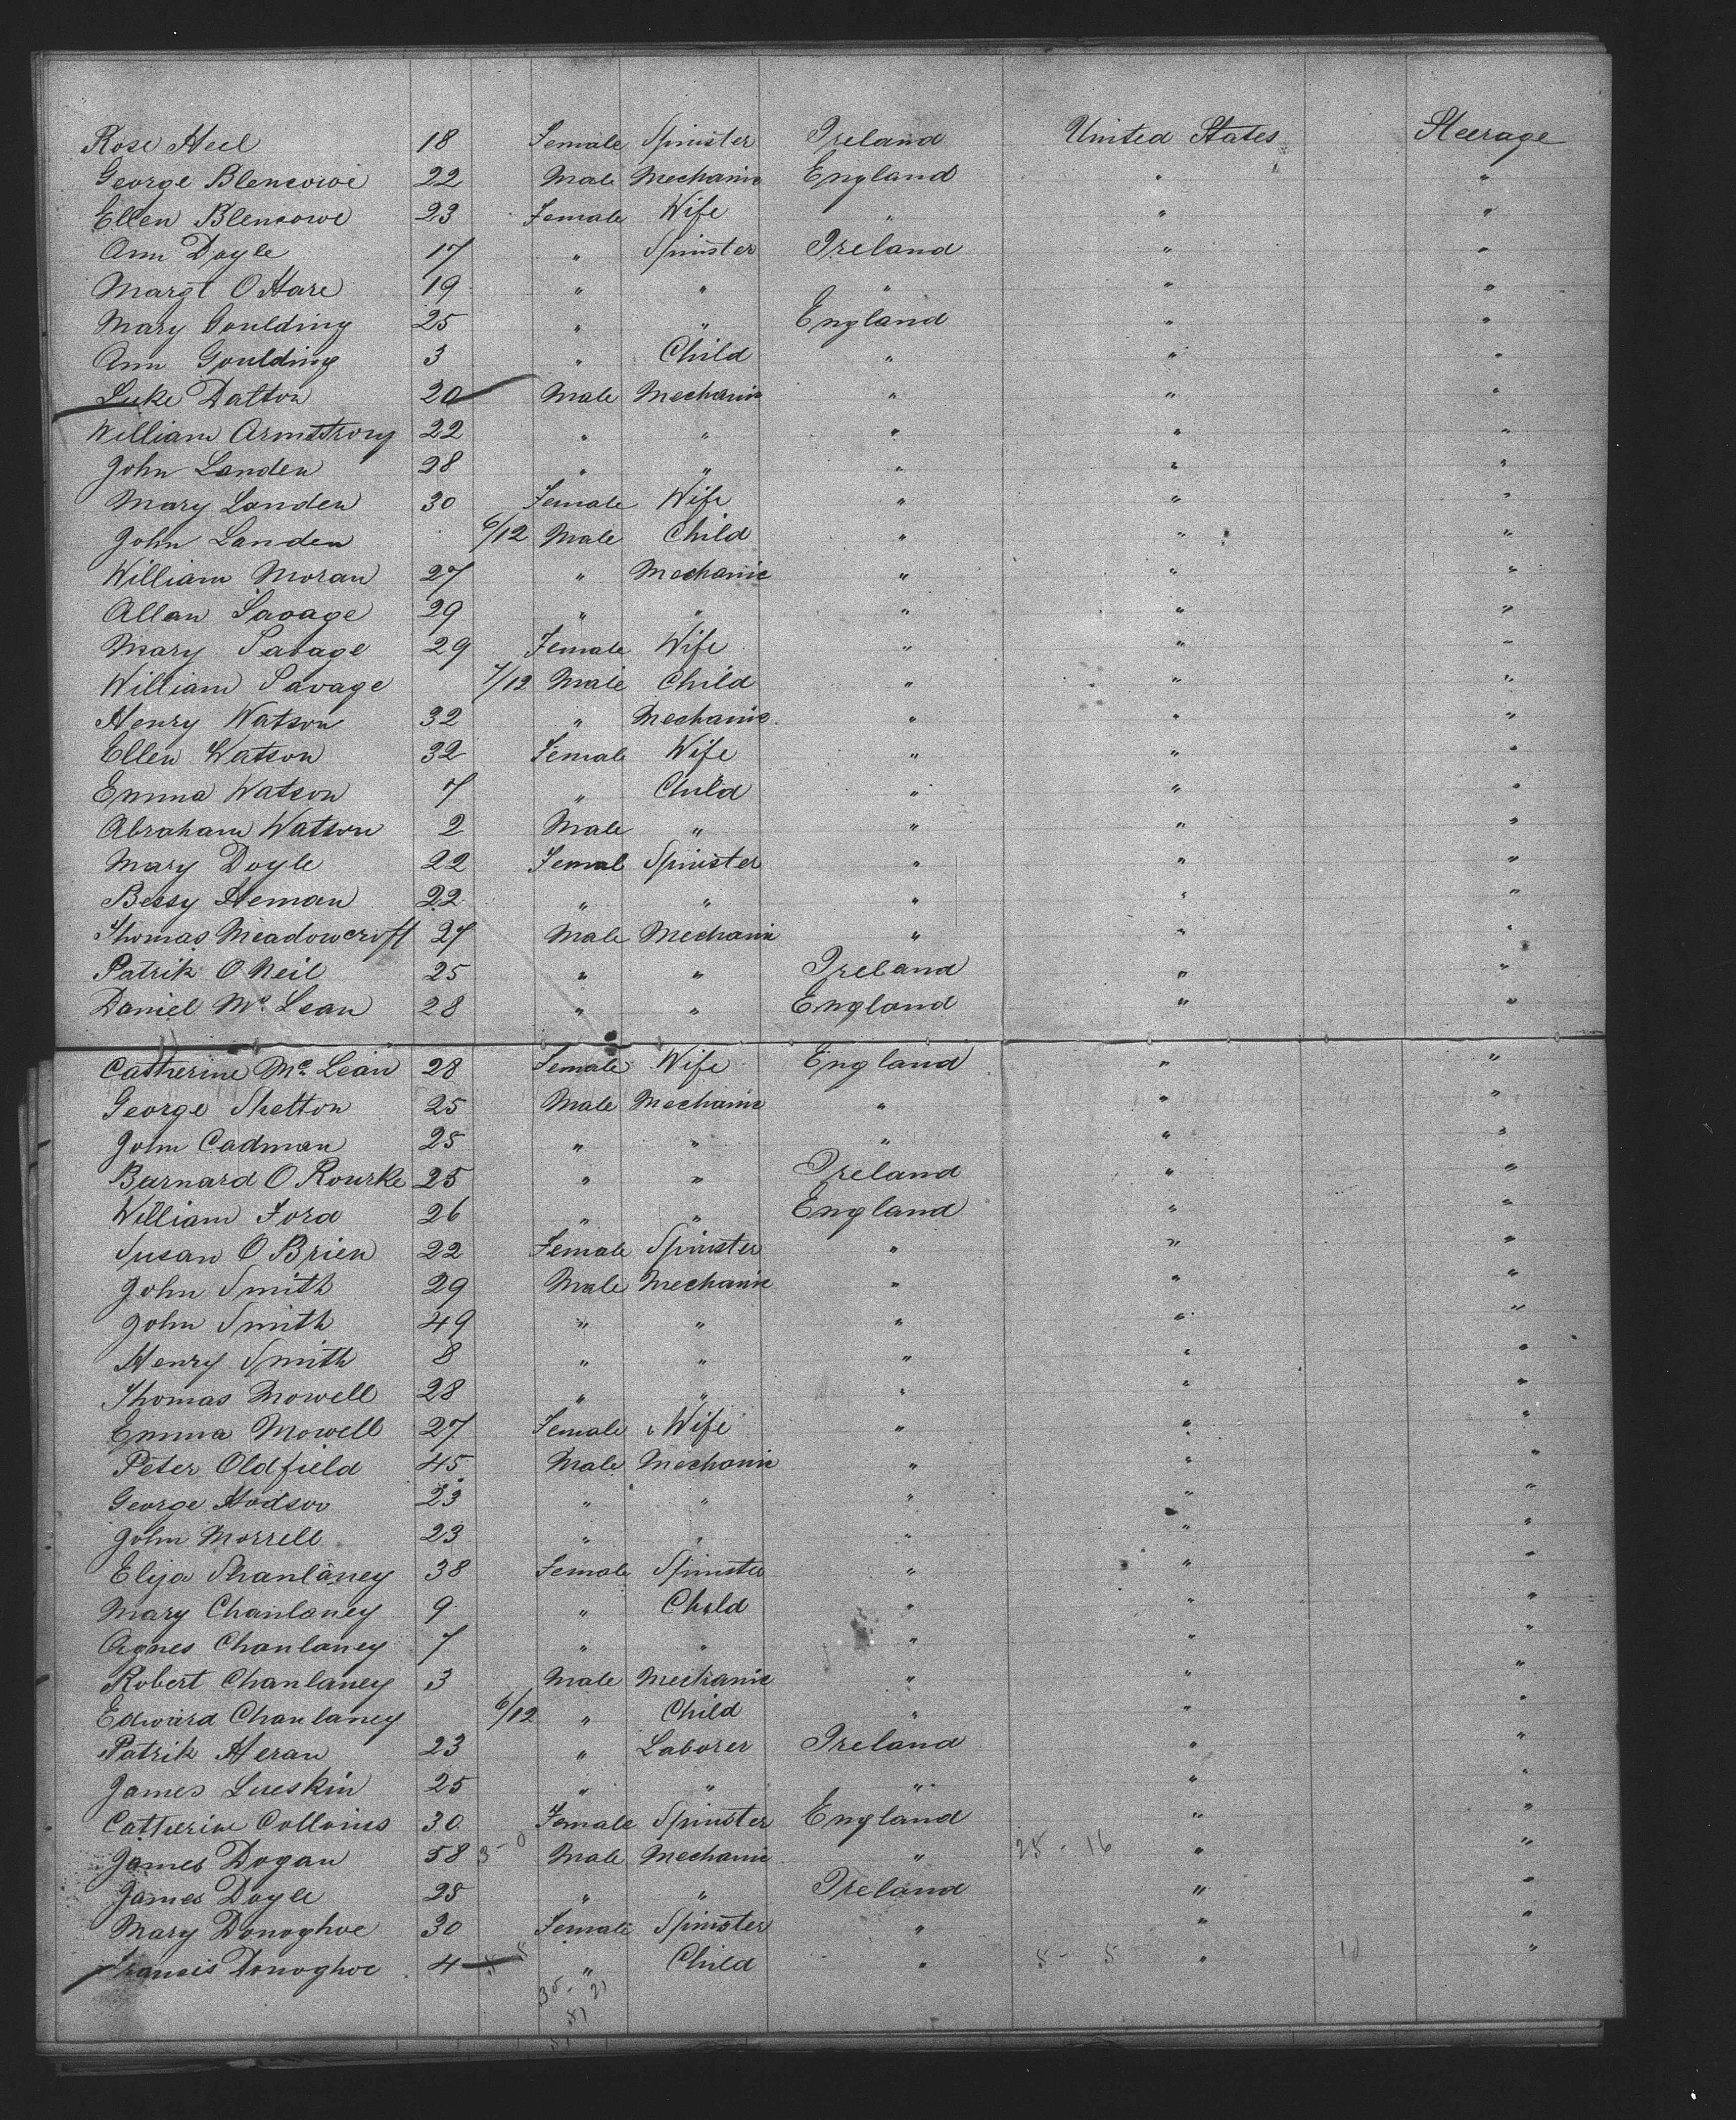 Rose Heel 18 Female Spinister Ireland United States Steerage
George Blencowe 22 Male Mechanic England " "
Ellen Blencowe 23 Female Wife " " "
Ann Doyle 17 " Spinister Ireland " "
Margt O Hare 19 " " " " "
Mary Goulding 25 " " England " "
Ann Goulding 3 " Child " " "
Luke Dalton 20 Male Mechanic " " "
William Armstrong 22 " " " " "
John Landen 28 " " " " "
Mary Landen 30 Female Wife " " "
John Landen 6/12 Male Child " " "
William Moran 27 " Mechanic " " "
Allan Savage 29 " " " " "
Mary Savage 29 Female Wife " " "
William Savage 7/12 Male Child " " "
Henry Watson 32 " Mechanic " " "
Ellen Watson 32 Female Wife " " "
Emma Watson 7 " Child " " "
Abraham Watson 2 Male " " " "
Mary Doyle 22 Femal Spinister " " "
Bessy Heman 22 " " " " "
Thomas Meadowcroft 27 Male Mechanic " " "
Patrik O Neil 25 " " Ireland " "
Daniel Mc Lean 28 " " England " "
Catherine Mc Lean 28 Female Wife England " "
George Shelton 25 Male Mechanic " " "
John Cadman 25 " " " " "
Barnard O Rourke 25 " " Ireland " "
William Ford 26 " " England " "
Susan O Brien 22 Female Spinster " " "
John Smith 29 Male Mechanic " " "
John Smith 49 " " " " "
Henry Smith 8 " " " " "
Thomas Mowell 28 " " " " "
Emma Mowell 27 Female Wife " " "
Peter Oldfield 45 Male Mechanic " " "
George Hodson 23 " " " " "
John Morrell 23 " " " " "
Eliza Shanlaney 38 Female Spinster " " "
Mary Chanlaney 9 " Child " " "
Agnes Chanlaney 7 " " " " "
Robert Chanlaney 3 Male Mechanic " " "
Edward Chanlaney 6/12 " Child " " "
Patrik Heran 23 " Laborer Ireland " "
James Lueskin 25 " " " " "
Catherine Colloins 30 Female Spinster England " "
James Dogan 58 3-0 Male Mechanic " 25 - 16 " "
James Doyle 25 " " Ireland " "
Mary Donoghoe 30 Female Spinster " " "
Francis Donoghoe 4 " Child " 5 - 5 " 10 "
35- 21
51